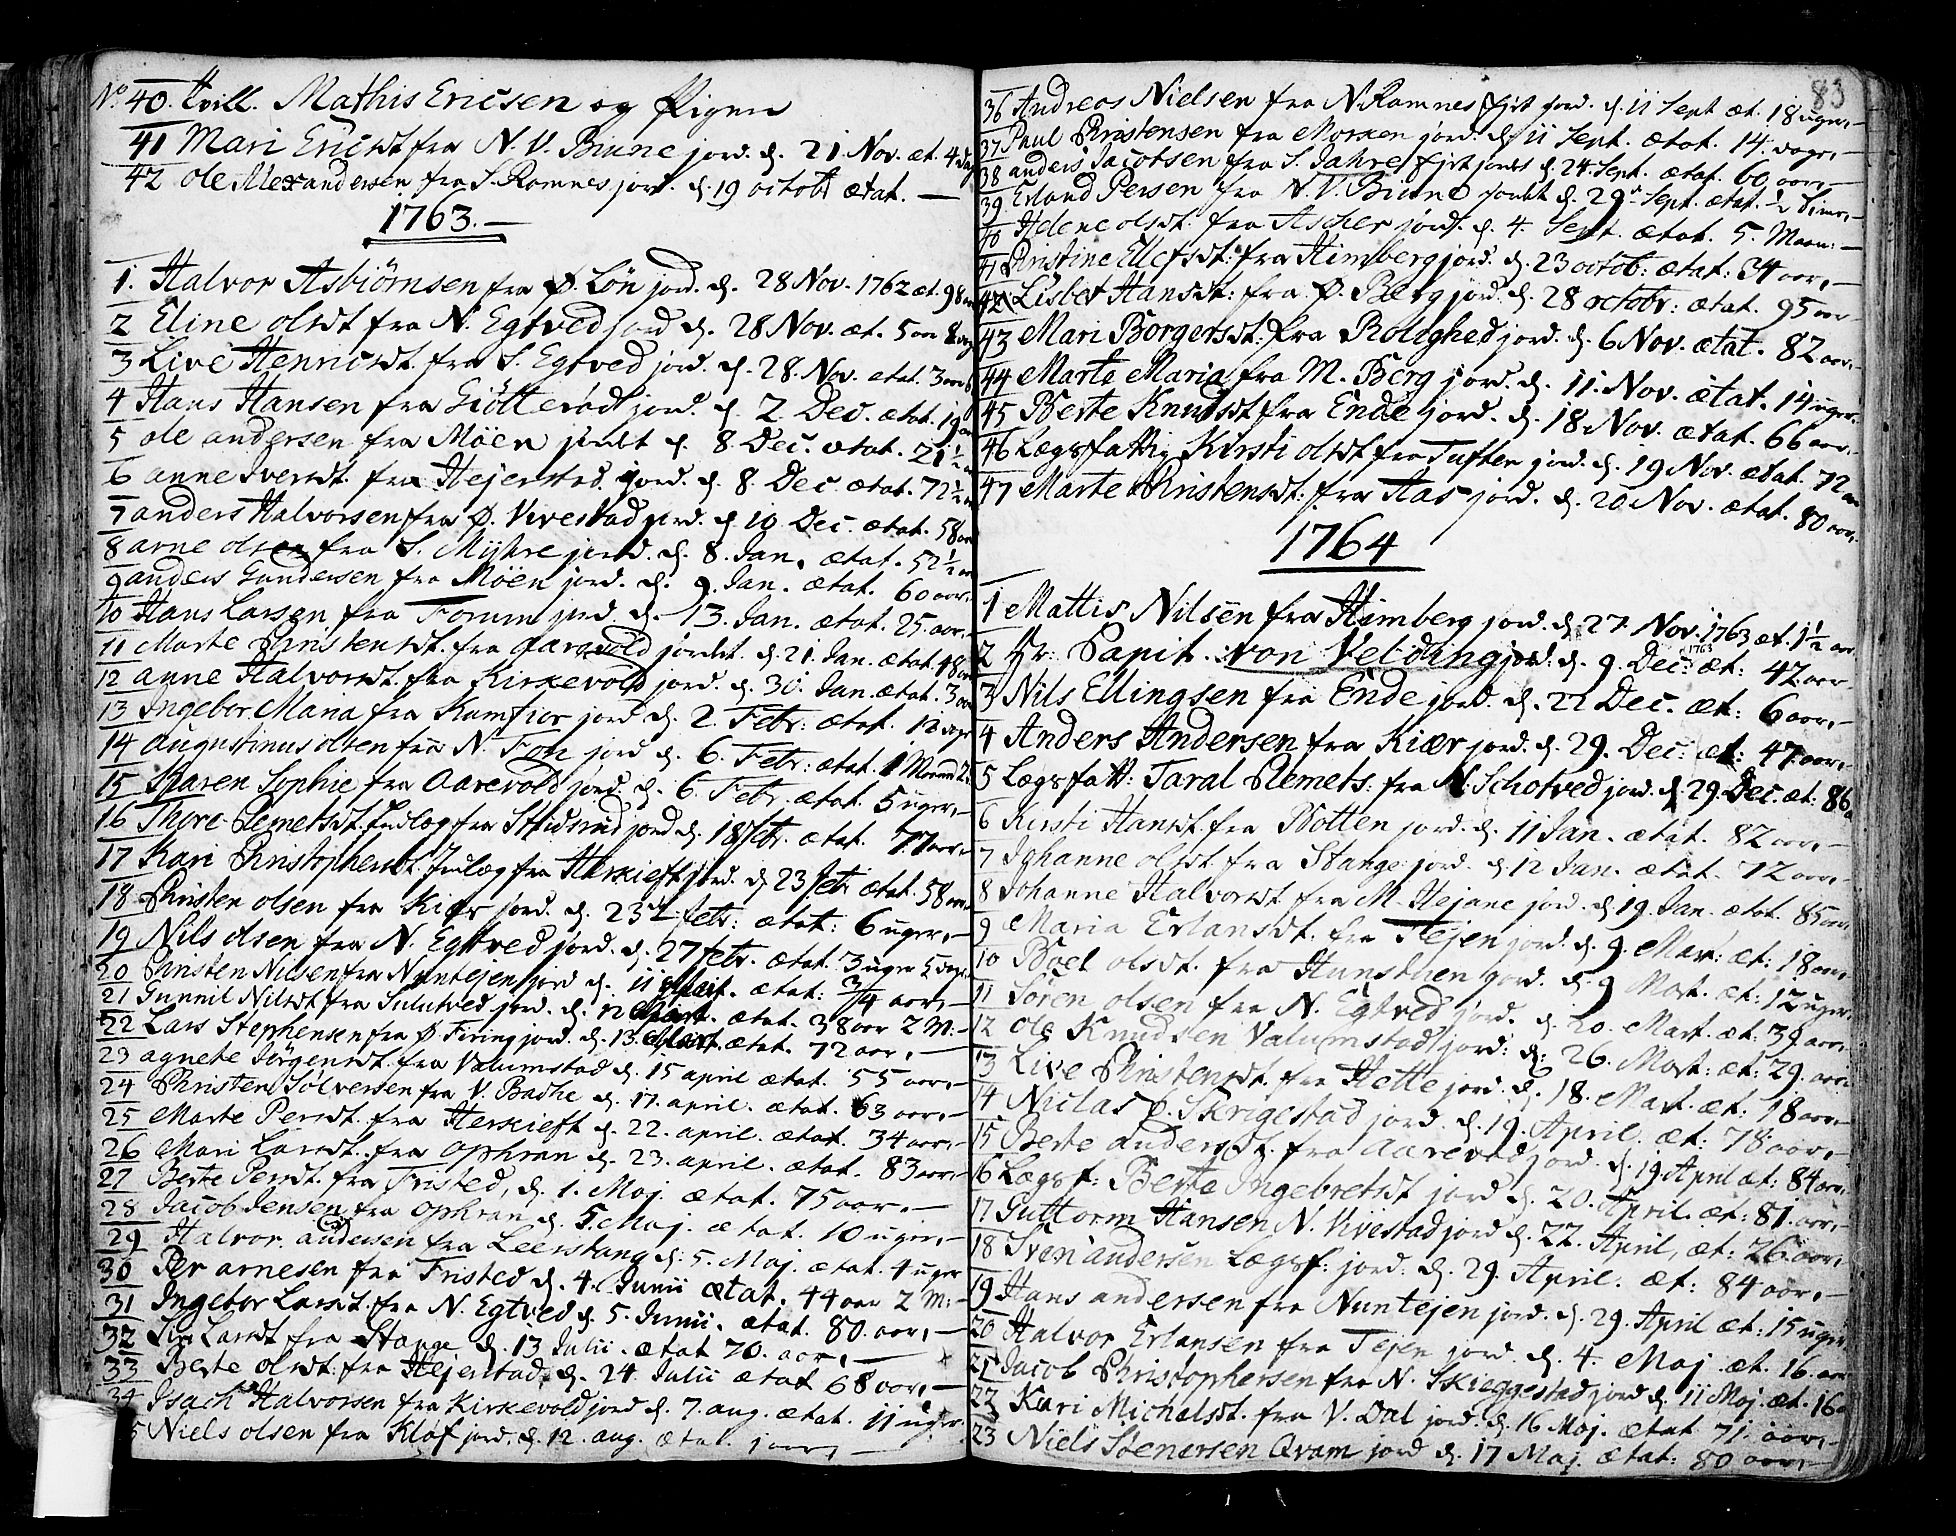 No 40. tvill. Mathis Ericsen og Pigen
41 Mari Ericsdt fra N. V. Biune jord. d. 21 Nov. æt. 4 dag
42 Ole Alexandersen fra S. Ramnes jord. d. 19 octobr ætat. —
1763. —
1. Halvor Asbiörnsen fra Ø. Lön jord. d. 28 Nov. 1762 æt. 98
2 Eline olsdt fra N. Egtved jord d. 28 Nov. æt. 5 8
3 Live Henricsdt. fra S. Egtved jord. d. 28. Nov. etat. 3
4 Hans Hansen fra Giötterød jord. d. 2 Dec. ætat. 19
5 ole andersen fra Möen jordt d. 8. Dec. ætat. 21 1/2
6 anne Iversdt. fra Hejerstad jord. d. 8. Dec ætat. 72 1/2
7 anders Halvorsen fra Ø. Vivestad jord. d. 10 Dec. ætat. 58
8 arne olsen fra S. Myhre jord. d. 8. Jan. ætat. 52 1/2
9 anders Gundersen fra Möen jord. d. 9. Jan. ætat. 60 aar,
10 Hans Larsen fra Forum jord. d. 13. Jan. ætat. 25 aar,
11 Marte Christensdt. fra Aarevold jordet. d. 21. Jan. ætat. 48
12 anne Halvorsdt. fra Kirkevold jord. d. 30. Jan. ætat. 3
13 Ingebor Maria fra jord d. 2. Febr: ætat.
14 Augustinus olsen fra N. Fon jord d. 6. Febr: ætat. 1 Maaned
15 Karen Sophie fra Aarevold jord. d. 6. Febr. ætat. 5 uger,—
16 Thore Clemetsdt. Indlæg fra jord d. 18 febr. ætat. 77 aar,
17 Kari Christophersdt. Indlæg fra Herkieft jord. d 23 febr ætat. 58
18 Christen olsen fra Kiær jord. d. 23 febr: ætat: 6 uger,—
19 Nils olsen fra N. Egtved jord. d. 27 febr. ætat. 3 uger 5
20 Christen Nilsen fra Nuntejen jord d. 11 Mart. ætat: 3/4 aar,—
21 Gunnil Nilsdt fra Sulutved jord. d. 12 Mart. ætat. 38 aar 2 M:—
22 Lars Stephensen fra Ø Firing jord. d. 13. Mart. ætat. 72 aar,—
23 agnete Jörgensdt. fra Valumstad d. 15 april ætat. 55 aar,
24 Christen Solversen fra V. Badhe d. 17. april. ætat. 63 aar,—
25 Marte Persdt. fra Herkieft d. 22. april. ætat. 34 aar,—
26 Mari Larsdt. fra Ophran d. 23. april. ætat. 83 aar,—
27 Berte Persdt. fra Fristed, d. 1. Maj. ætat. 75 aar.—
28 Jacob Jensen fra Ophran d. 5. Maj. ætat. 10 uger,—
29 Halvor andersen fra Leerstang d. 5. Maj. ætat. 4 uger
30 Per arnesen fra Fristed d. 4. Junii ætat. 44 aar 2 M:—
31 Ingebor Larsdt. fra N. Egtved d. 5. Junii. ætat. 80. aar,—
32 Siri Larsdt fra Stange d. 13 Julii. ætat 70. aar,—
33 Berte olsdt. fra Hejerstad. d. 24 Julii ætat 68 aar,—
34 Isach Halvorsen fra Kirkevold jord d. 7. aug. ætat. 11 uger.
35 Niels olsen fra Klöf jord. d. 12. aug. ætat. 1 aar,—
83
36 Andreas Nielsen fra N. Ramnes jord. d. 11 Sept æt. 18 uger,—
37 Paul Christensen fra Morken jord. d. 11 Sept. ætat. 14 dage,—
38 anders Jacobsen fra S. Jahre jordt d. 24. Sept. ætat. 60 aar,—
39 Erland Persen fra N. V. Biune jordet d. 29 Sept. ætat. 1/2 time,—
40 Helene olsdt. fra Ascher jord. d. 4. Sept. ætat. 5. Maan:—
41 Christine Ellefsdt: fra Himberg jord. d. 23 octob: ætat: 34 aar,—
42 Lisbet Hansdt: fra Ø. Berg jord. d. 28 octobr: ætat. 95 aar
43 Mari Borgersdt: fra Rolighed jord. d. 6 Nov. ætat. 82 aar,
44 Marte Maria fra M. Berg jord. d. 11. Nov. ætat. 14 uger.
45 Berte Knudsdt fra Ende jord. d. 18. Nov. ætat. 66 aar,
46 Lægsfattig Kirsti olsdt fra Tuften jord. d. 19 Nov. ætat. 72
47 Marte Christensdt: fra Aas jord. d. 20. Nov. ætat. 80 aar,
1764
1 Mattis Nilsen fra Himberg jord. d. 27. Nov. 1763 æt. 1 1/2 aar
2 Hr: Capit. von Veldung jord: d. 9. Dec: 1763 æt: 42 aar
3 Nils Ellingsen fra Ende jord. d. 22 Dec. æt: 6 aar,—
4 Anders Andersen fra Kiær jord. d. 29. Dec: æt: 47 aar,—
5 Lægsfatt: Taral Clemets: fra N. Schotved jord. d. 29. Dec. æt: 86
6 Kirsti Hansdt. fra Botten jord. d. 11 Jan. ætat. 82 aar,—
7 Johanne olsdt. fra Stange jord. d. 12 Jan. ætat. 72 aar,—
8 Johanne Halvorsdt fra M. Hejane jord. d. 19. Jan. ætat. 85
9 Maria Erlansdt. fra Tejen jord. d. 9. Mart: æt: 18
10 Boel olsdt. fra Hunstuen jord. d. 9 Mart. æt: 12 uger
11 Sören olsen fra N. Egtved jord. d. 20. Mart. æt: 39 aar,
12 Ole Knudsen Valumstad jord: d: 26. Mart. æt: 29. aar
13 Live Christensdt. fra Hette jord. d. 18. Mart. æt: 18 aar,
14 Niclas Ø. Skrigestad jord. d. 19. April. æt: 78. aar,—
15 Berte andersdt. fra Aarevold jord. d. 19 April æt: 84 aar,
16 Lægsf: Berte Ingebretsdt jord d. 20. April. æt: 81. aar,
17 Guttorm Hansen N. Vivestad jord d. 22. April, æt: 26 aar,
18 Sven andersen Lægsf: jord: d. 29. April. æt: 84 aar,—
19 Hans andersen fra Nuntejen jord. d. 29. April æt: 15 uger
20 Halvor Erlansen fra Tejen jord. d. 4. Maj æt. 16.
21 Jacob Christophersen fra N. Skieggestad jord d. 11 Maj. æt. 16
22 Kari Michelsdt. fra V. Dal jord. d. 16 Maj. ætat 71. aar,—
23 Niels Stenersen Qvam jord d. 17 Maj. ætat: 80 aar,—